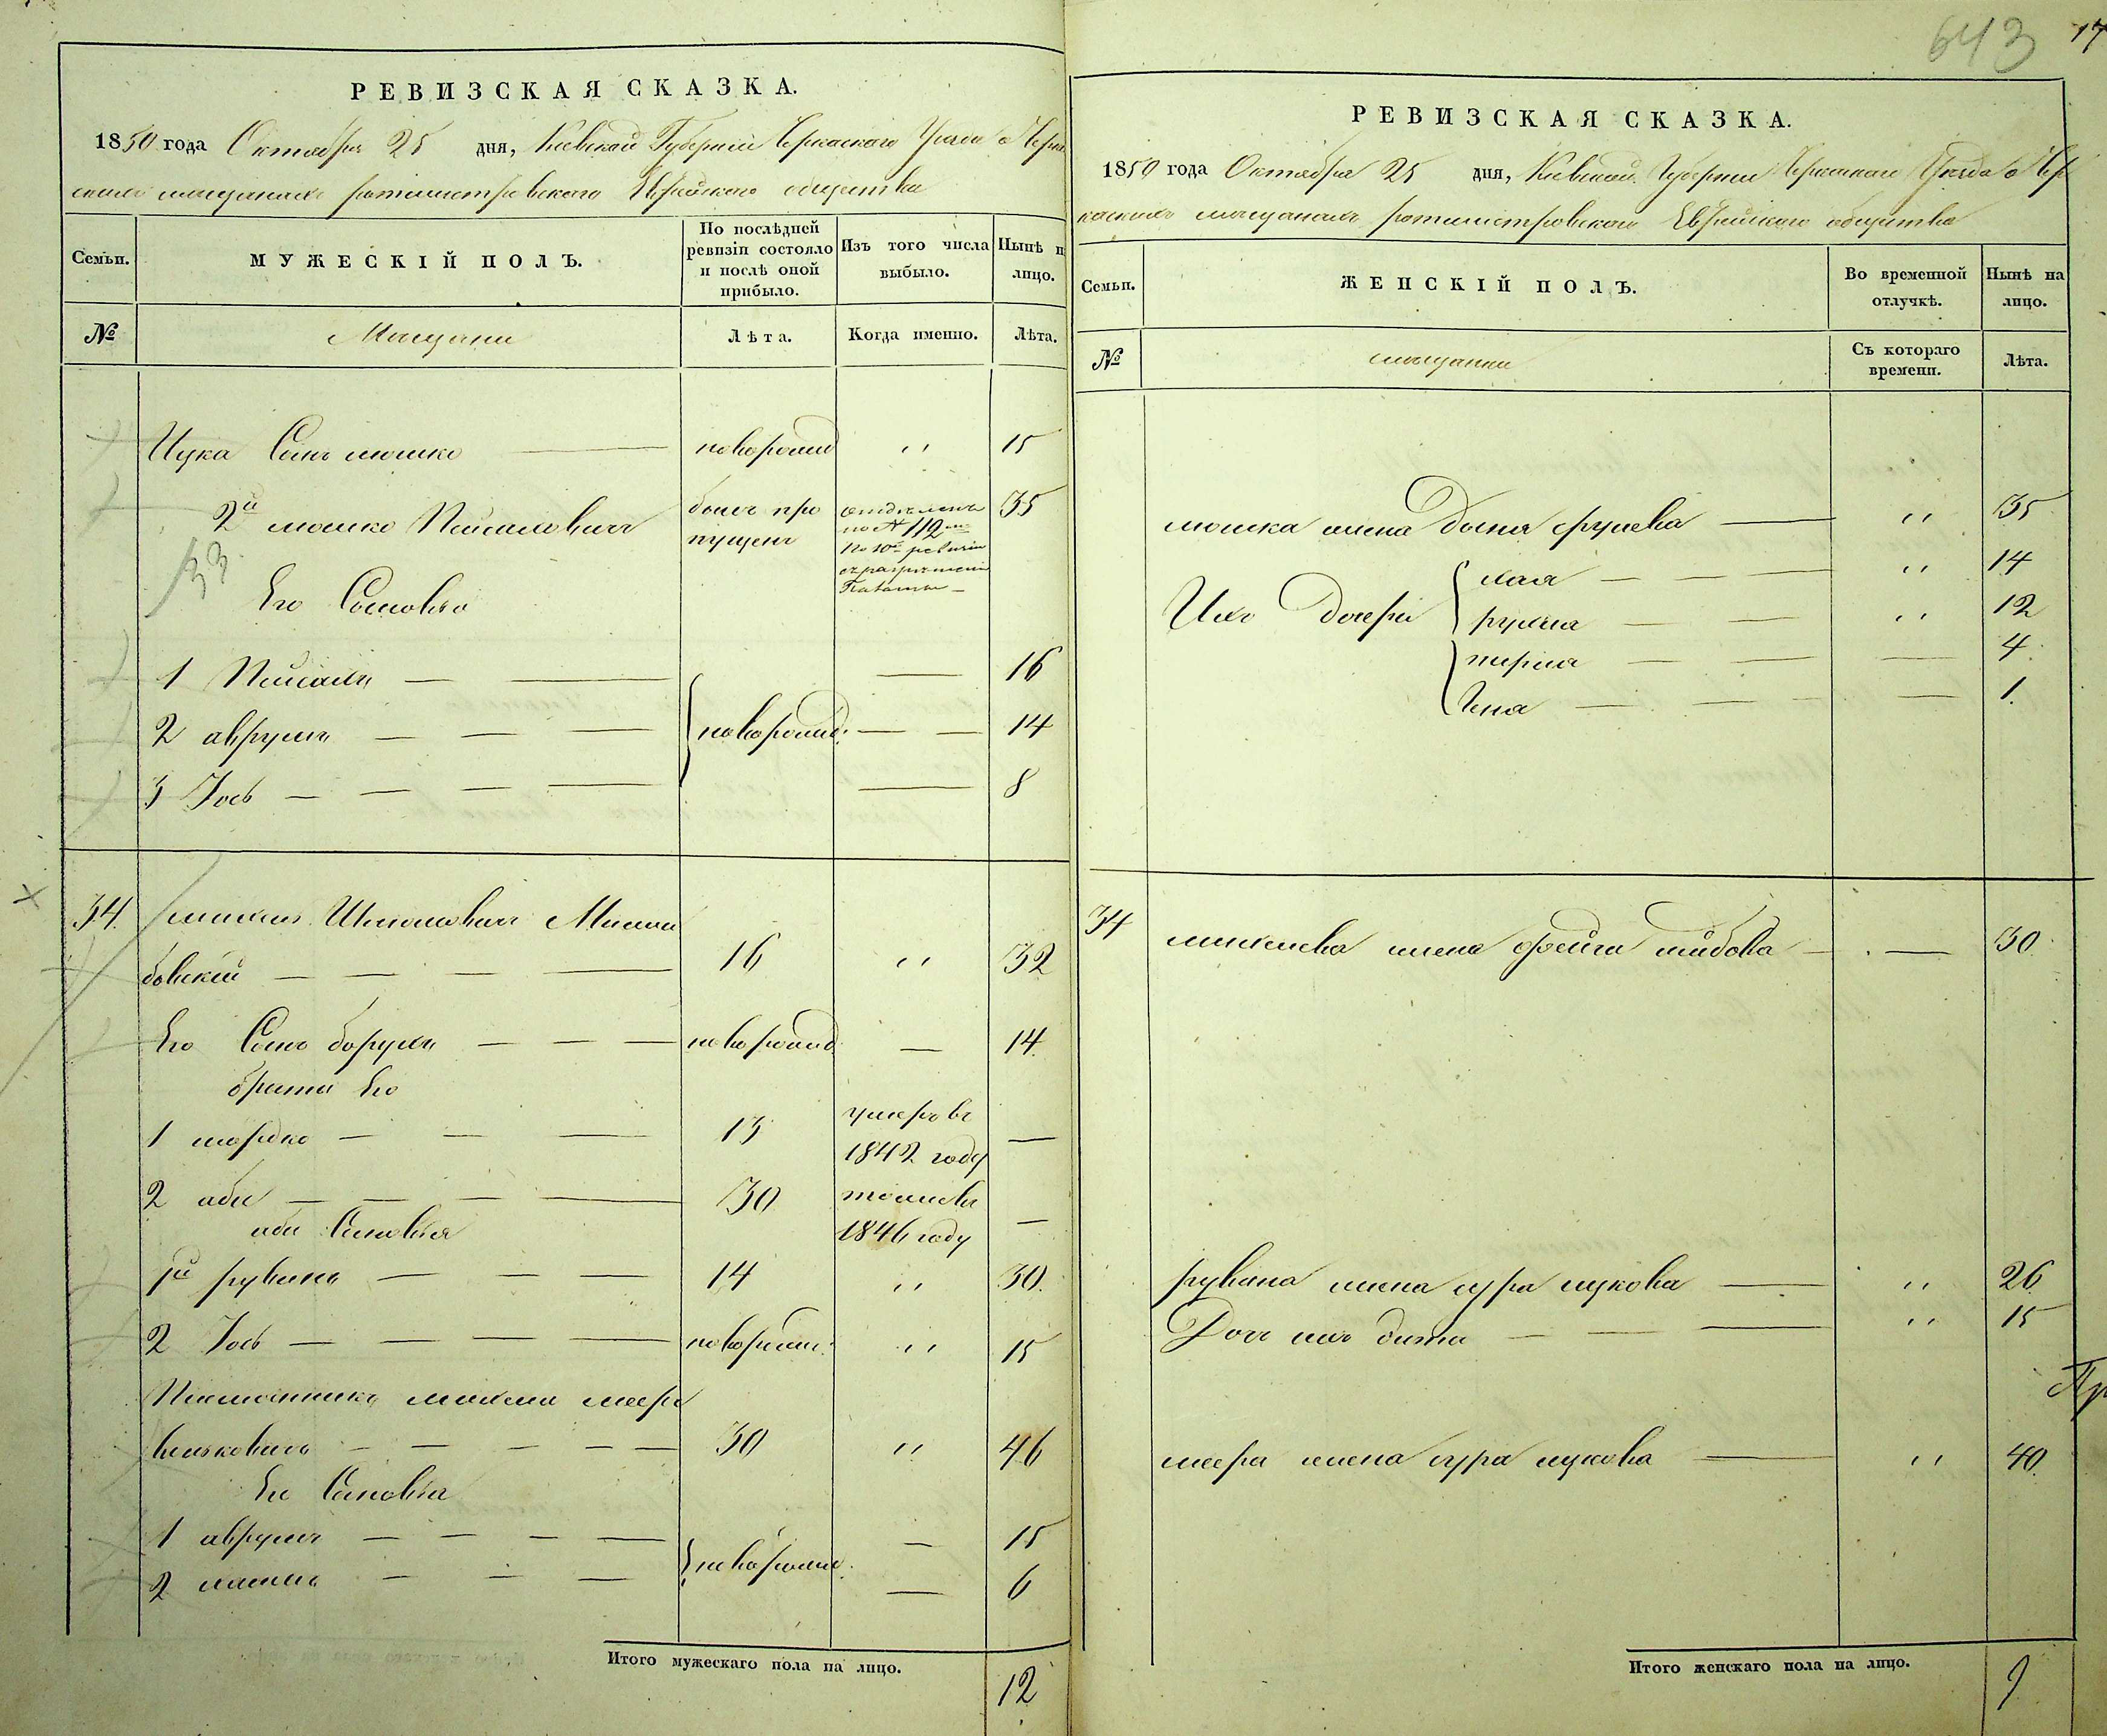 РЕВИЗСКАЯ СКАЗКА.
1850 года Октября 25 дня, Киевской Губернии Черкаского Уезда о Черка
скихъ мещанахъ ротмистровского Еврейского общества
Семьи.
МУЖЕСКІЙ ПОЛЪ.
По послѣдней ревизіи состояло и послѣ оной прибыло.
Изъ того числа выбыло.
Нынѣ н лицо.
№
Мещане
Лѣта.
Когда именно.
Лѣта.
Ицка Сынъ мошко новорожд 〃 15
2й мошко Пейсаховичъ былъ про 35
пущенъ
отдѣленъ
по № 112
по 10й ревизіи
съ разрѣшенія
Палаты
33
Его Сыновья
1 Пейсахъ 16
2 аврумъ новорожд: 14
3 Іось 8
34. Шмоловичъ
бовскій 16 〃 32
Его Сынъ борухъ новорожд 14.
братья Его
1 мордко 13 умеръ въ
1842 году
2 аби 30 тожъ въ
1846 году
аби Сыновья
1й рувинъ 14 〃 30.
2 Іось новорожд: 〃 15
Племянникъ меера
30 〃 46
Его Сыновья
1 аврумъ 15
новорожд:
2 6
Итого мужескаго пола на лицо.
12
643 17
РЕВИЗСКАЯ СКАЗКА.
1850 года Октября 25 дня, Киевской Губернии Черкаского Уезда о Чер
каскихъ мещанахъ ротмистровского Еврейского общества
Семьи.
ЖЕНСКІЙ ПОЛЪ.
Во временной отлучкѣ.
Нынѣ на лицо.
№
мещанки
Съ котораго времени.
Лѣта.
мошка жена 〃 35
хая 〃 14
Ихъ Дочери рухля 〃 12
перля 4
Гена 1.
34 жена фейга лейбова 30.
рувина жена сура ицкова 〃 26
Дочь ихъ 〃 15
Пр
меера жена сура ицкова 〃 40.
Итого женскаго пола на лицо.
9